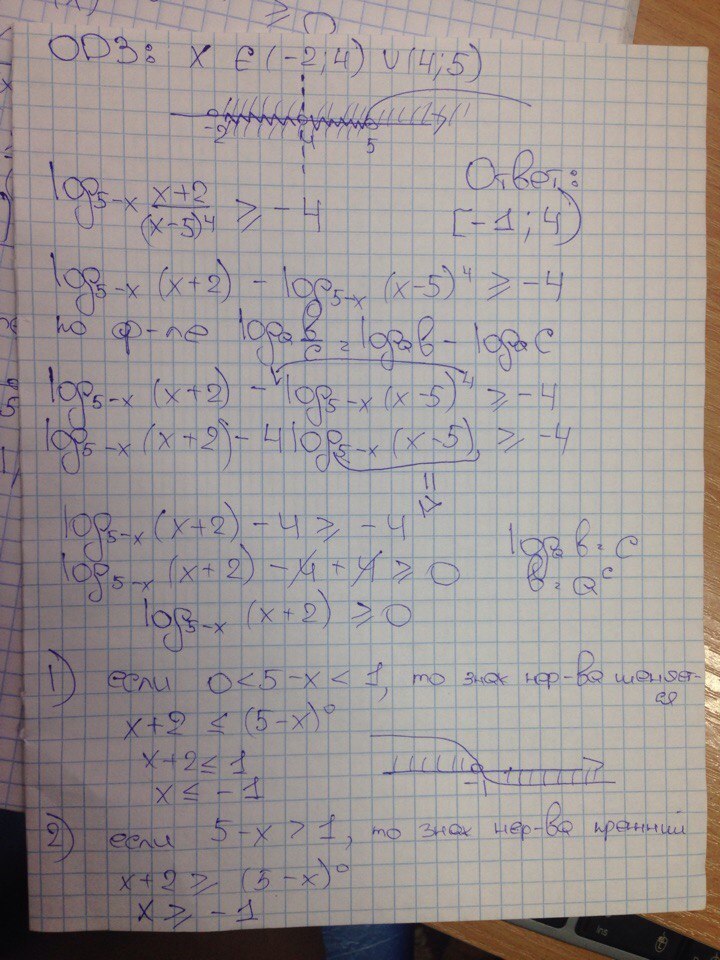 ОДЗ: x ∈ (-2; 4) ∪ (4; 5)
-2 4 5
log₅₋ₓ (x+2)/(x-5)⁴ ≥ -4
Ответ:
[-1; 4)
log₅₋ₓ (x+2) - log₅₋ₓ (x-5)⁴ ≥ -4
по ф-ле logₐ b/c = logₐb - logₐc
log₅₋ₓ (x+2) - log₅₋ₓ (x-5)⁴ ≥ -4
log₅₋ₓ (x+2) - 4 log₅₋ₓ (x-5) ≥ -4
log₅₋ₓ (x+2) - 4 ≥ -4
log₅₋ₓ (x+2) - 4 + 4 ≥ 0
logₐ b = c
b = aᶜ
log₅₋ₓ (x+2) ≥ 0
1) если 0 < 5-x < 1, то знак нер-ва меняет-
ся
x+2 ≤ (5-x)⁰
x+2 ≤ 1
x ≤ -1
-1
2) если 5-x > 1, то знак нер-ва прежний
x+2 ≥ (5-x)⁰
x ≥ -1
Ins